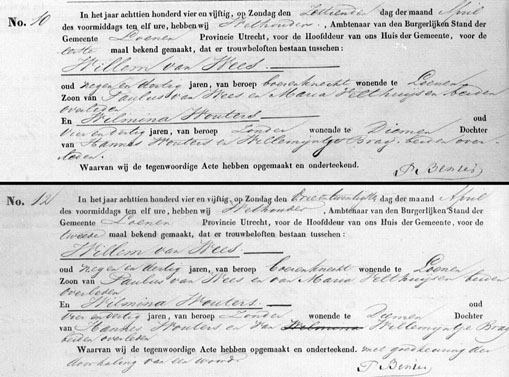 No. 10 In het jaar achttien honderd vier en vijftig, op Zondag den zestiende dag der maand April
des voormiddags ten elf ure, hebben wij Wethouder, Ambtenaar van den Burgerlijken Stand der
Gemeente Loenen Provincie Utrecht, voor de Hoofddeur van ons Huis der Gemeente, voor de
eerste maal bekend gemaakt, dat er trouwbeloften bestaan tusschen:
Willem van Wees
oud negen en dertig jaren, van beroep boerenknecht wonende te Loenen
Zoon van Paulus van Wees en Maria Velthuysen beiden
overleden
En Wilmina Wouters oud
Vier en dertig jaren, van beroep Zonder wonende te Diemen Dochter
van Hannes Wouters en Willemyntje Brag, beiden over-
leden.
Waarvan wij de tegenwoordige Acte hebben opgemaakt en onderteekend.
P Benser
No. 12 In het jaar achttien honderd vier en vijftig, op Zondag den Drieentwintigste dag der maand April
des voormiddags ten elf ure, hebben wij Wethouder, Ambtenaar van den Burgerlijken Stand der
Gemeente Loenen Provincie Utrecht, voor de Hoofddeur van ons Huis der Gemeente, voor de
tweede maal bekend gemaakt, dat er trouwbeloften bestaan tusschen:
Willem van Wees
oud negen en dertig jaren, van beroep boerenknecht wonende te Loenen
Zoon van Paulus van Wees en van Maria Velthuysen beiden
overleden
En Wilmina Wouters oud
Vier en dertig jaren, van beroep Zonder wonende te Diemen Dochter
van Hannes Wouters en van Willemyntje Brag
beiden overleden
Waarvan wij de tegenwoordige Acte hebben opgemaakt en onderteekend. met goedkeuring der
doorhaling van een woord.
P Benser